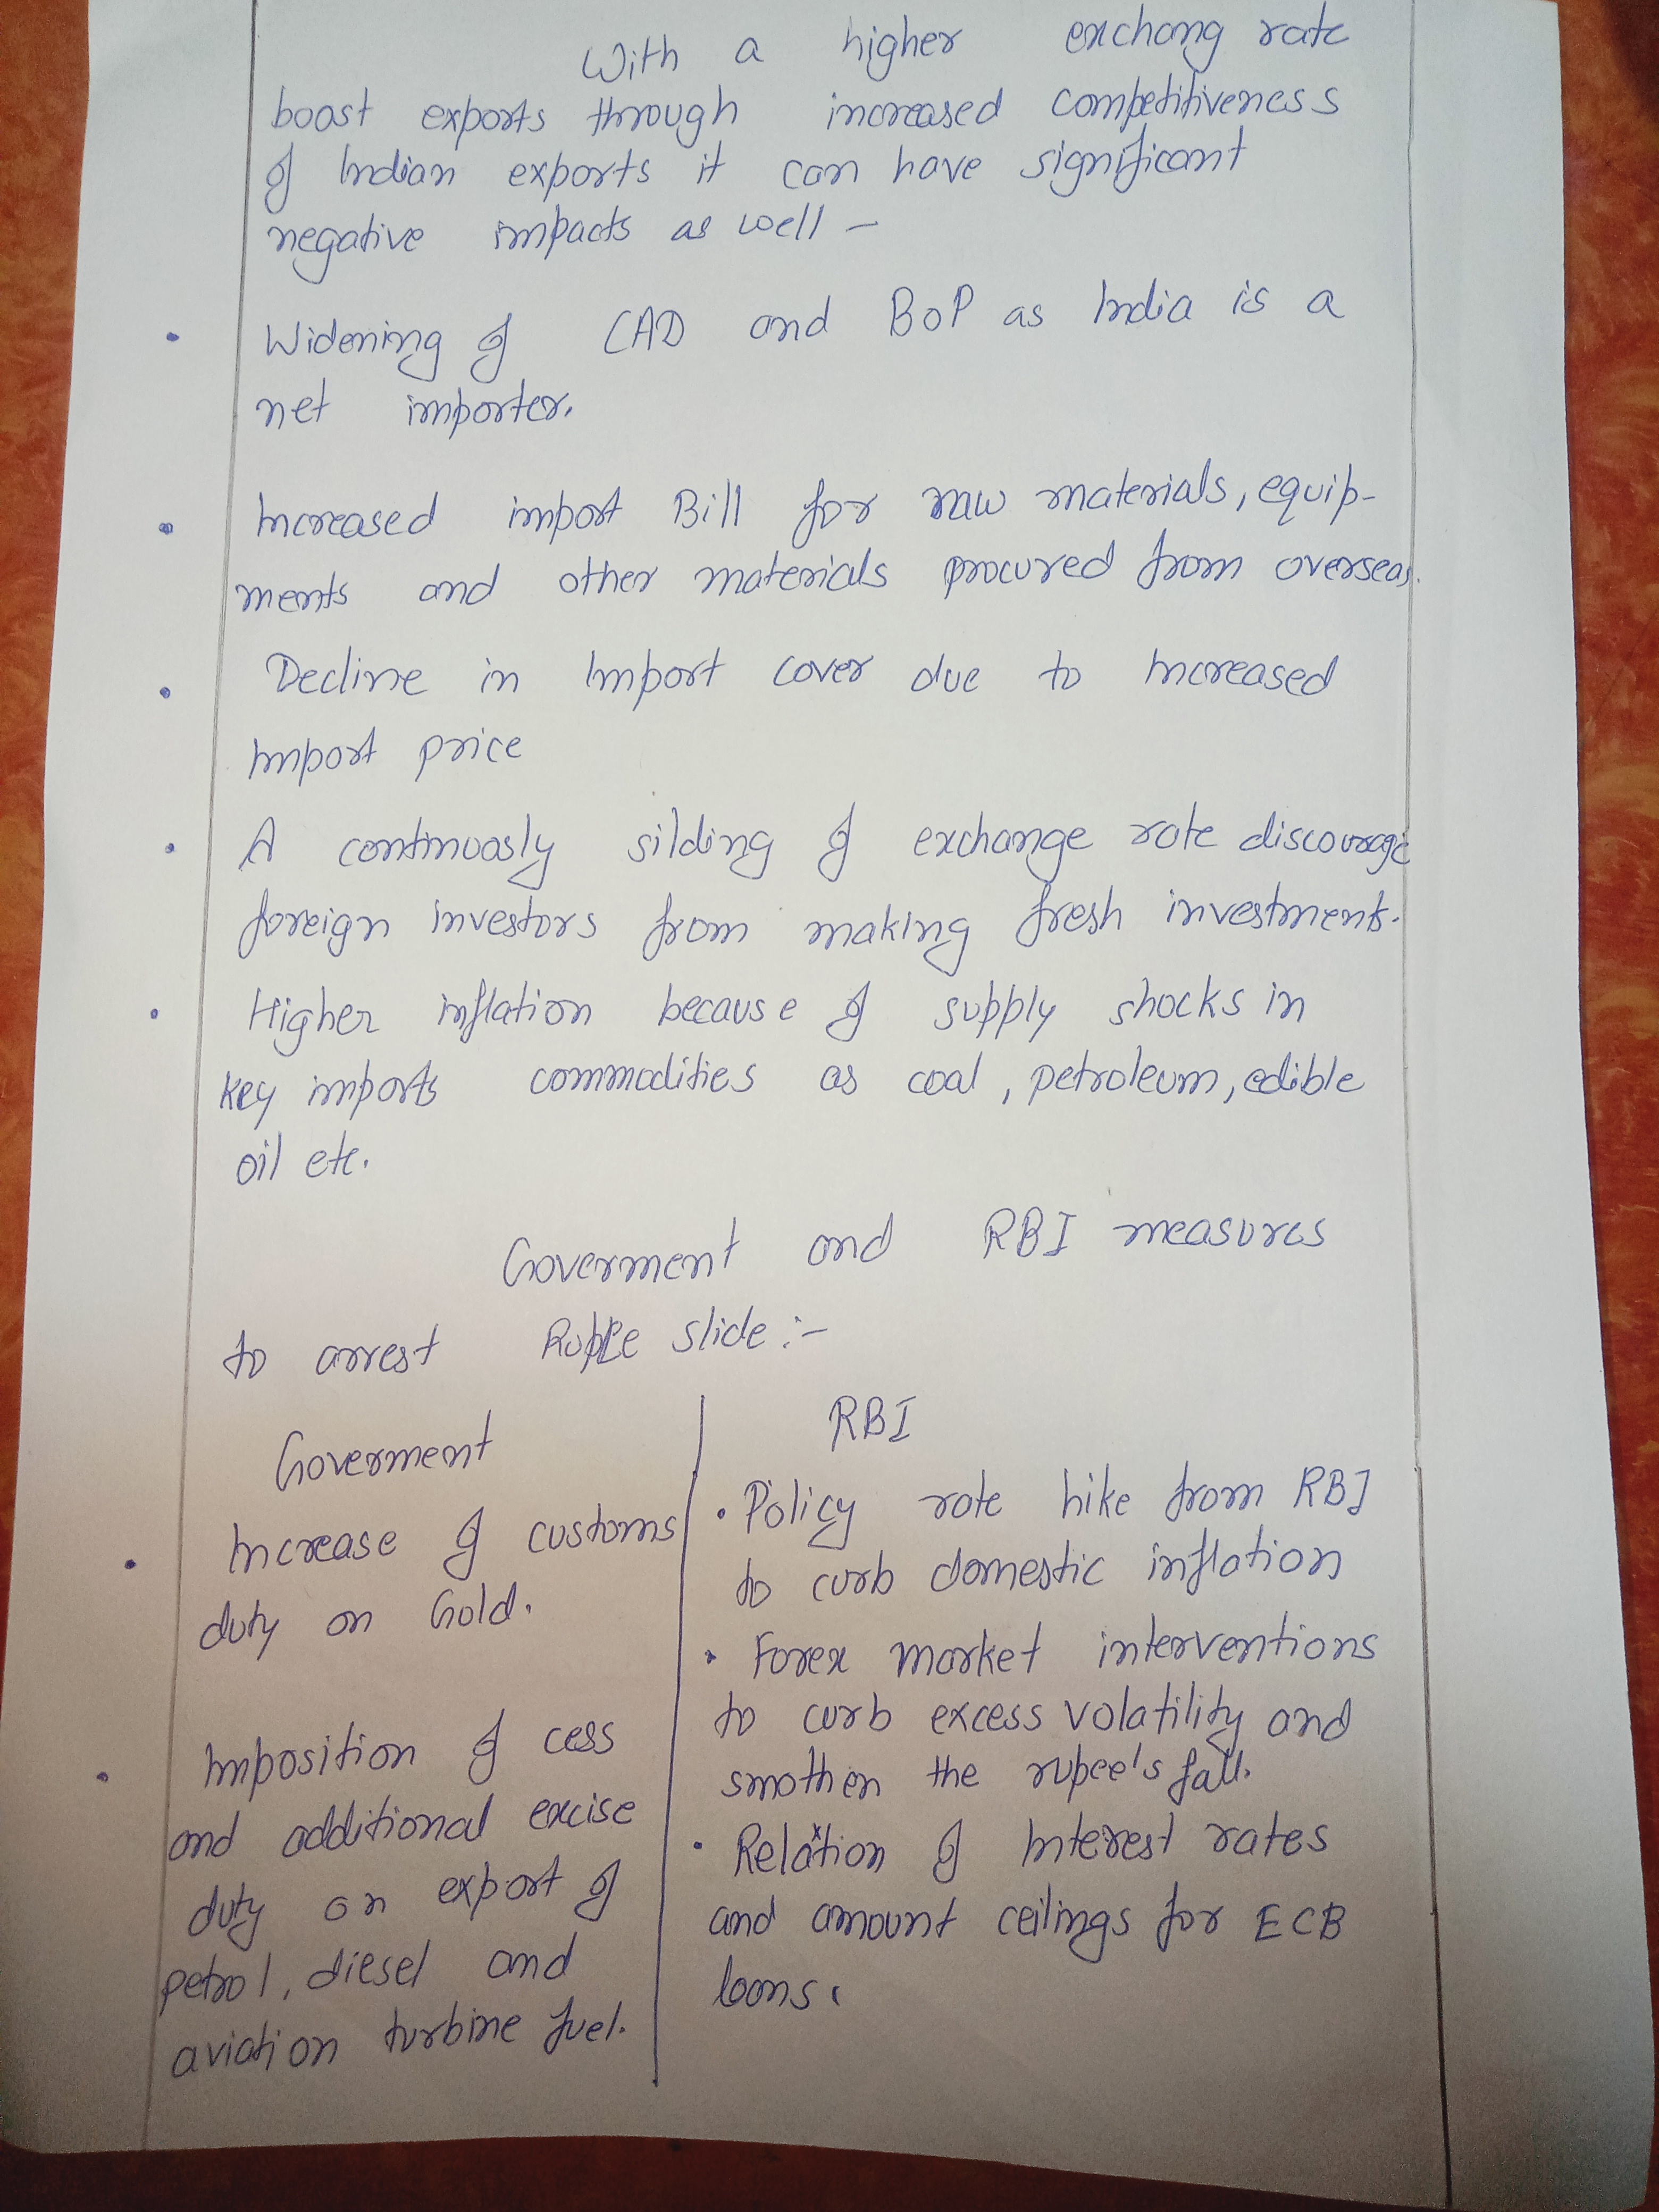 With a higher exchang rate
boost exports through increased competitiveness
of Indian exports it can have significant
negative impacts as well –
• Widening of CAD and BoP as India is a
net importer.
• Increased import Bill for raw materials, equip-
ments and other materials procured from overseas.
• Decline in Import cover due to Increased
Import price
• A continuosly silding of exchange rate discourage
foreign investors from making fresh investments.
• Higher inflation because of supply shocks in
key imports commodities as coal, petroleum, edible
oil etc.
Goverment and RBI measures
to arrest Rupee slide :-
Goverment
• Increase of customs
duty on Gold.
• Imposition of cess
and additional excise
duty on export of
petrol, diesel and
aviation turbine fuel.
RBI
• Policy rate hike from RBI
to curb domestic inflation
• Forex market interventions
to curb excess volatility and
smothen the rupee's fall.
• Relaxtion of Interest rates
and amount ceilings for ECB
loans.